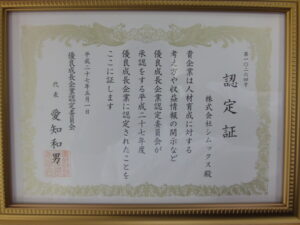 認定証
株式会社シムックス殿
貴企業は人材育成に対する
考え方や収益情報の開示など
優良成長企業認定委員会が
承認をする平成二十七年度
優良成長企業に認定されたことを
ここに証します
平成二十七年五月一日
優良成長企業認定委員会
代表 愛知和男